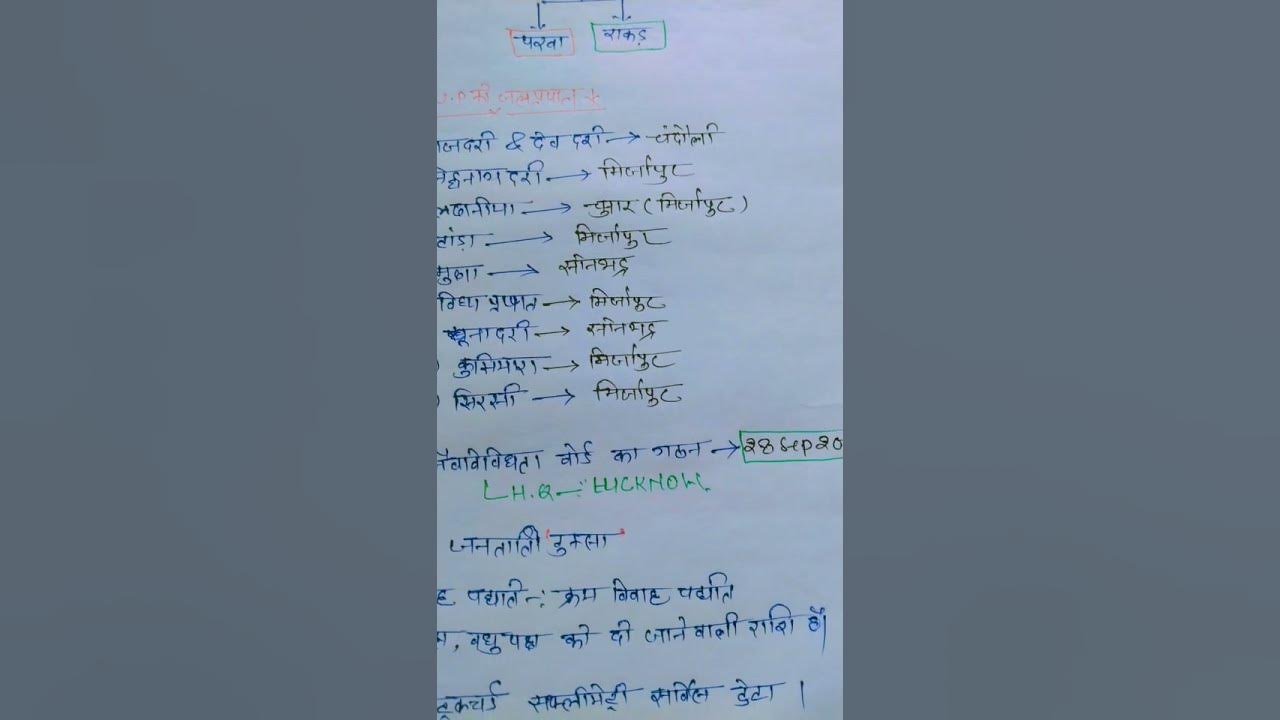 परवा राकड़
U.P की जलप्रपात
राजदरी & देव दरी → चंदौली
दरी → मिर्जापुर
→ चुनार (मिर्जापुर)
टांडा → मिर्जापुर
मुक्खा → सोनभद्र
विंध्य प्रपात → मिर्जापुर
दरी → सोनभद्र
→ मिर्जापुर
) सिरसी → मिर्जापुर
जैवविविधता बोर्ड का गठन → 28 Sep 20
H.Q -: LUCKNOW
जनजाति 'बुक्सा'
ह पद्यति -: क्रम विवाह पद्यति
, वधु पक्ष को दी जाने वाली राशि है।
सप्लीमेंट्री सर्विस डेटा ।